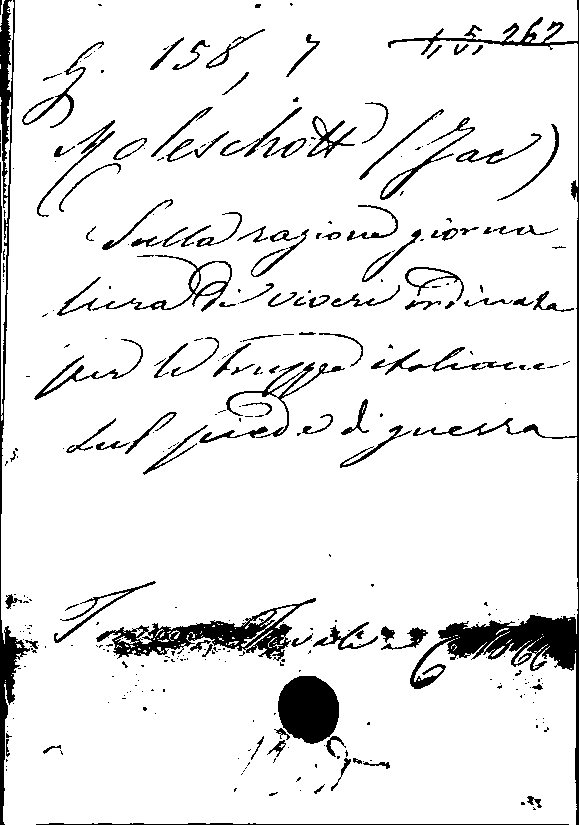 G. 158, 7 1, 5, 262
Moleschott (Jac)
Sulla razione giorna-
liera di viveri ordinata
per le truppe italiane
sul piede di guerra
1866